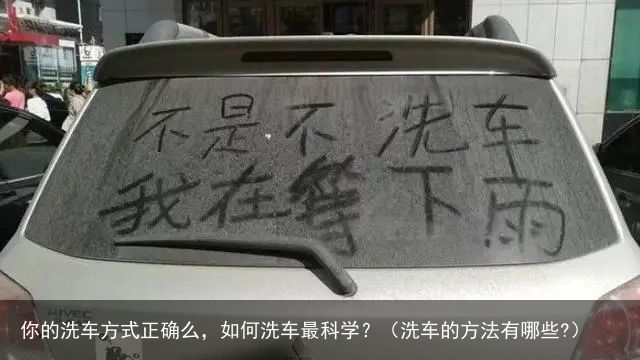 不是不洗车
我在等下雨
MIVEC
你的洗车方式正确么，如何洗车最科学？（洗车的方法有哪些?）